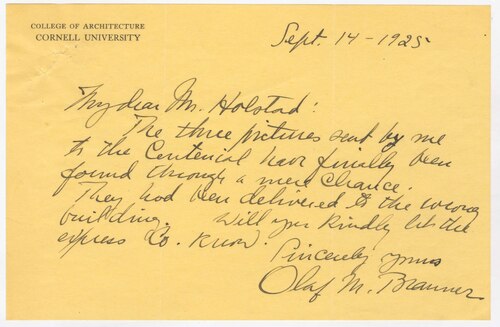 COLLEGE OF ARCHITECTURE
CORNELL UNIVERSITY
Sept. 14-1925
My dear Mr. Holstad:
The three pictures sent by me
to the Centenial have finally been
found through a mere chance.
They had been delivered to the wrong
building. Will you kindly let the
express Co. know.
Sincerely yours
Olaf M. Brauner